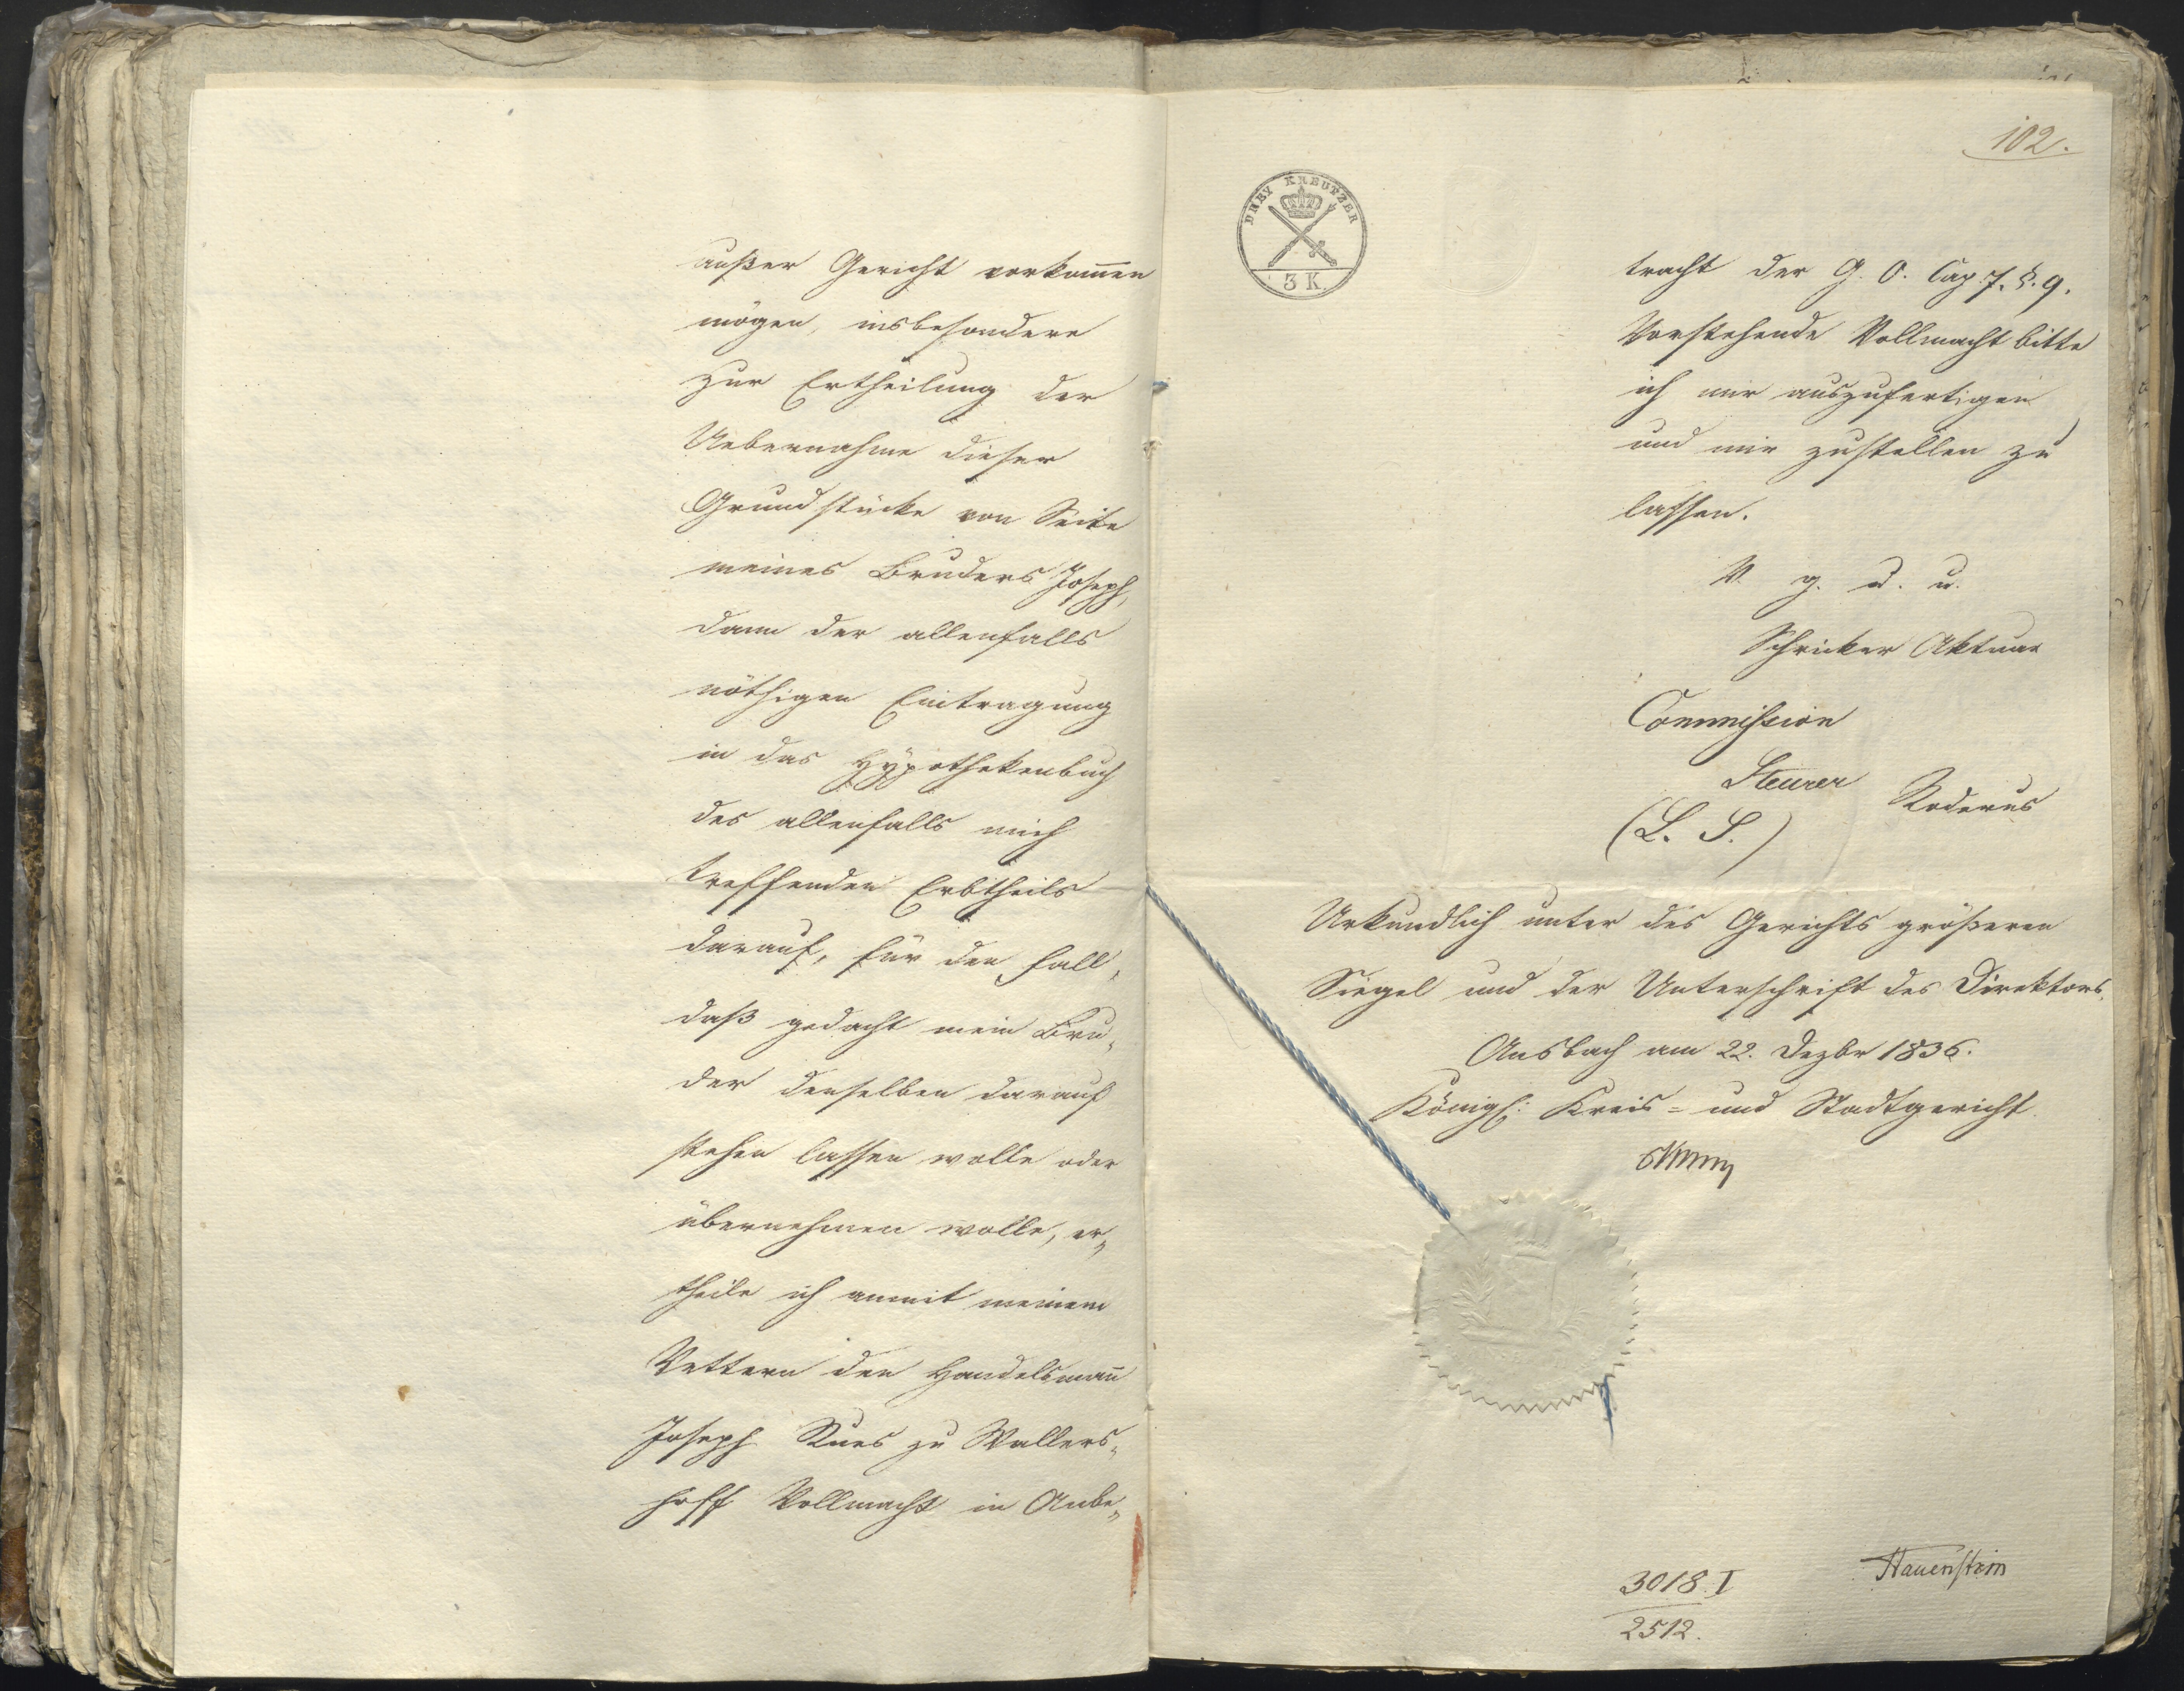 außer Gericht vorkom̄en
mögen, insbesondere
zur Ertheilung der
Uebernahme dieser
Grundstücke von Seite
meines Bruders Joseph,
dann der allenfalls
nöthigen Eintragung
in das Hypothekenbuch
des allenfalls mich
treffenden Erbtheils
darauf, für den Fall,
daß gedacht mein Bru„
der denselben darauf
stehen lassen wolle oder
übernehmen wolle, er„
theile ich anmit meinem
Vettern den Handelsman̄
Joseph Kues zu Wallers„
hoff Vollmacht in Anbe„
102.
DREY KREUTZER
3 K.
tracht der G. O. Cap. 7. §. 9.
Vorstehende Vollmacht bitte
ich nur auszufertigen
und mir zustellen zu
lassen.
V. g. u. u.
Schricker Aktuar
Commission
Steurer Roderus
(L. S.)
Urkundlich unter des Gerichts größeren
Siegel und der Unterschrift des Direktors.
Ansbach am 22. Dezbr 1836.
Königl: Kreis- und Stadtgericht.
3018 I
2512.
Hauenstein